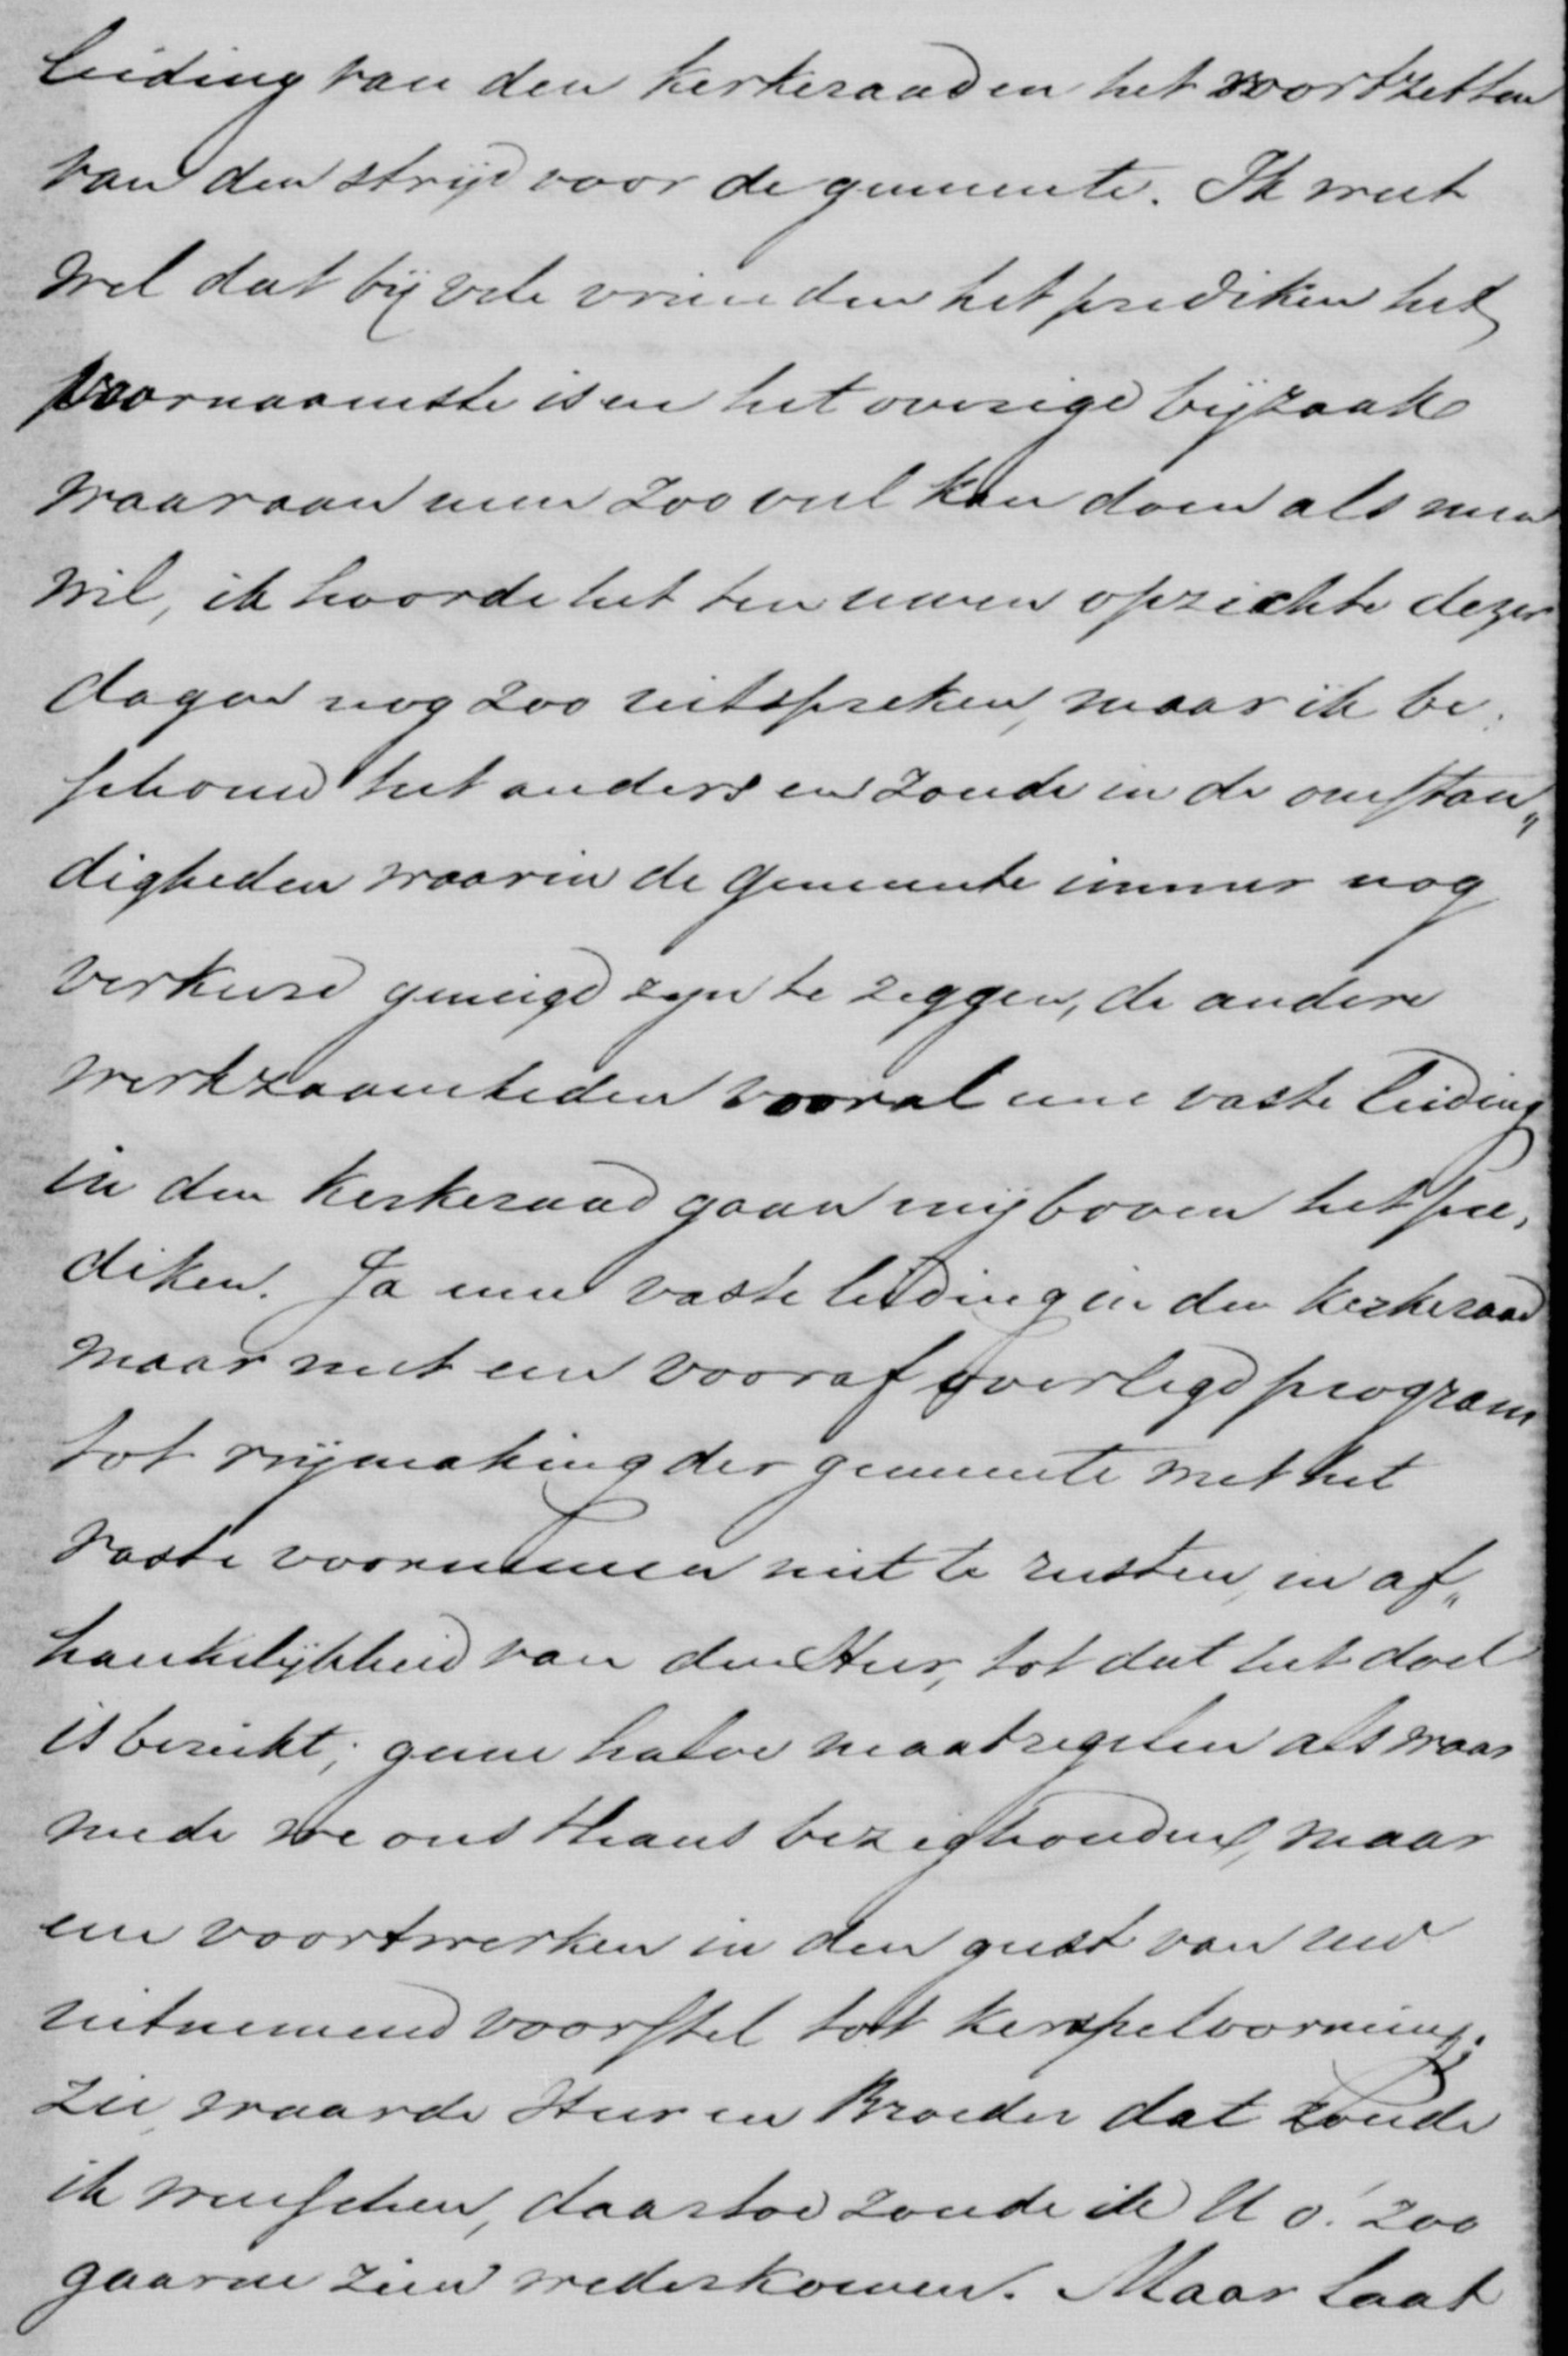 leiding van den kerkeraad en het voortzetten
van den strijd voor de gemeente. Ik weet
wel dat bij vele vrienden het prediken het
voornaamste is en het overige bijzaak
waaraan men zoo veel kan doen als men
wil, ik hoorde het ten uwen opzichte dezer
dagen nog zoo uitspreken, maar ik be-
schouw het anders en zoude in de omstan„
digheden waarin de gemeente immer nog
verkeerd geneigd zijn te zeggen, de andere
werkzaamheden vooral eene vaste leiding
in den kerkeraad gaan mij boven het pre,
diken. Ja eene vaste leiding in den kerkeraad
maar met een vooraf overlegd program
tot vrijmaking der gemeente met het
vaste voornemen niet te rusten, in af„
hankelijkheid van den Heer, tot dat het doel
is bereikt; geene halve maatregelen als waar
mede we ons thans bezighouden, maar
een voortwerken in den geest van uw
uitnemend voorstel tot kerspelvorming.
Zie, waarde Heer en Broeder dat zoude
ik wenschen, daartoe zoude ik U o! zoo
gaarne zien wederkomen. Maar laat